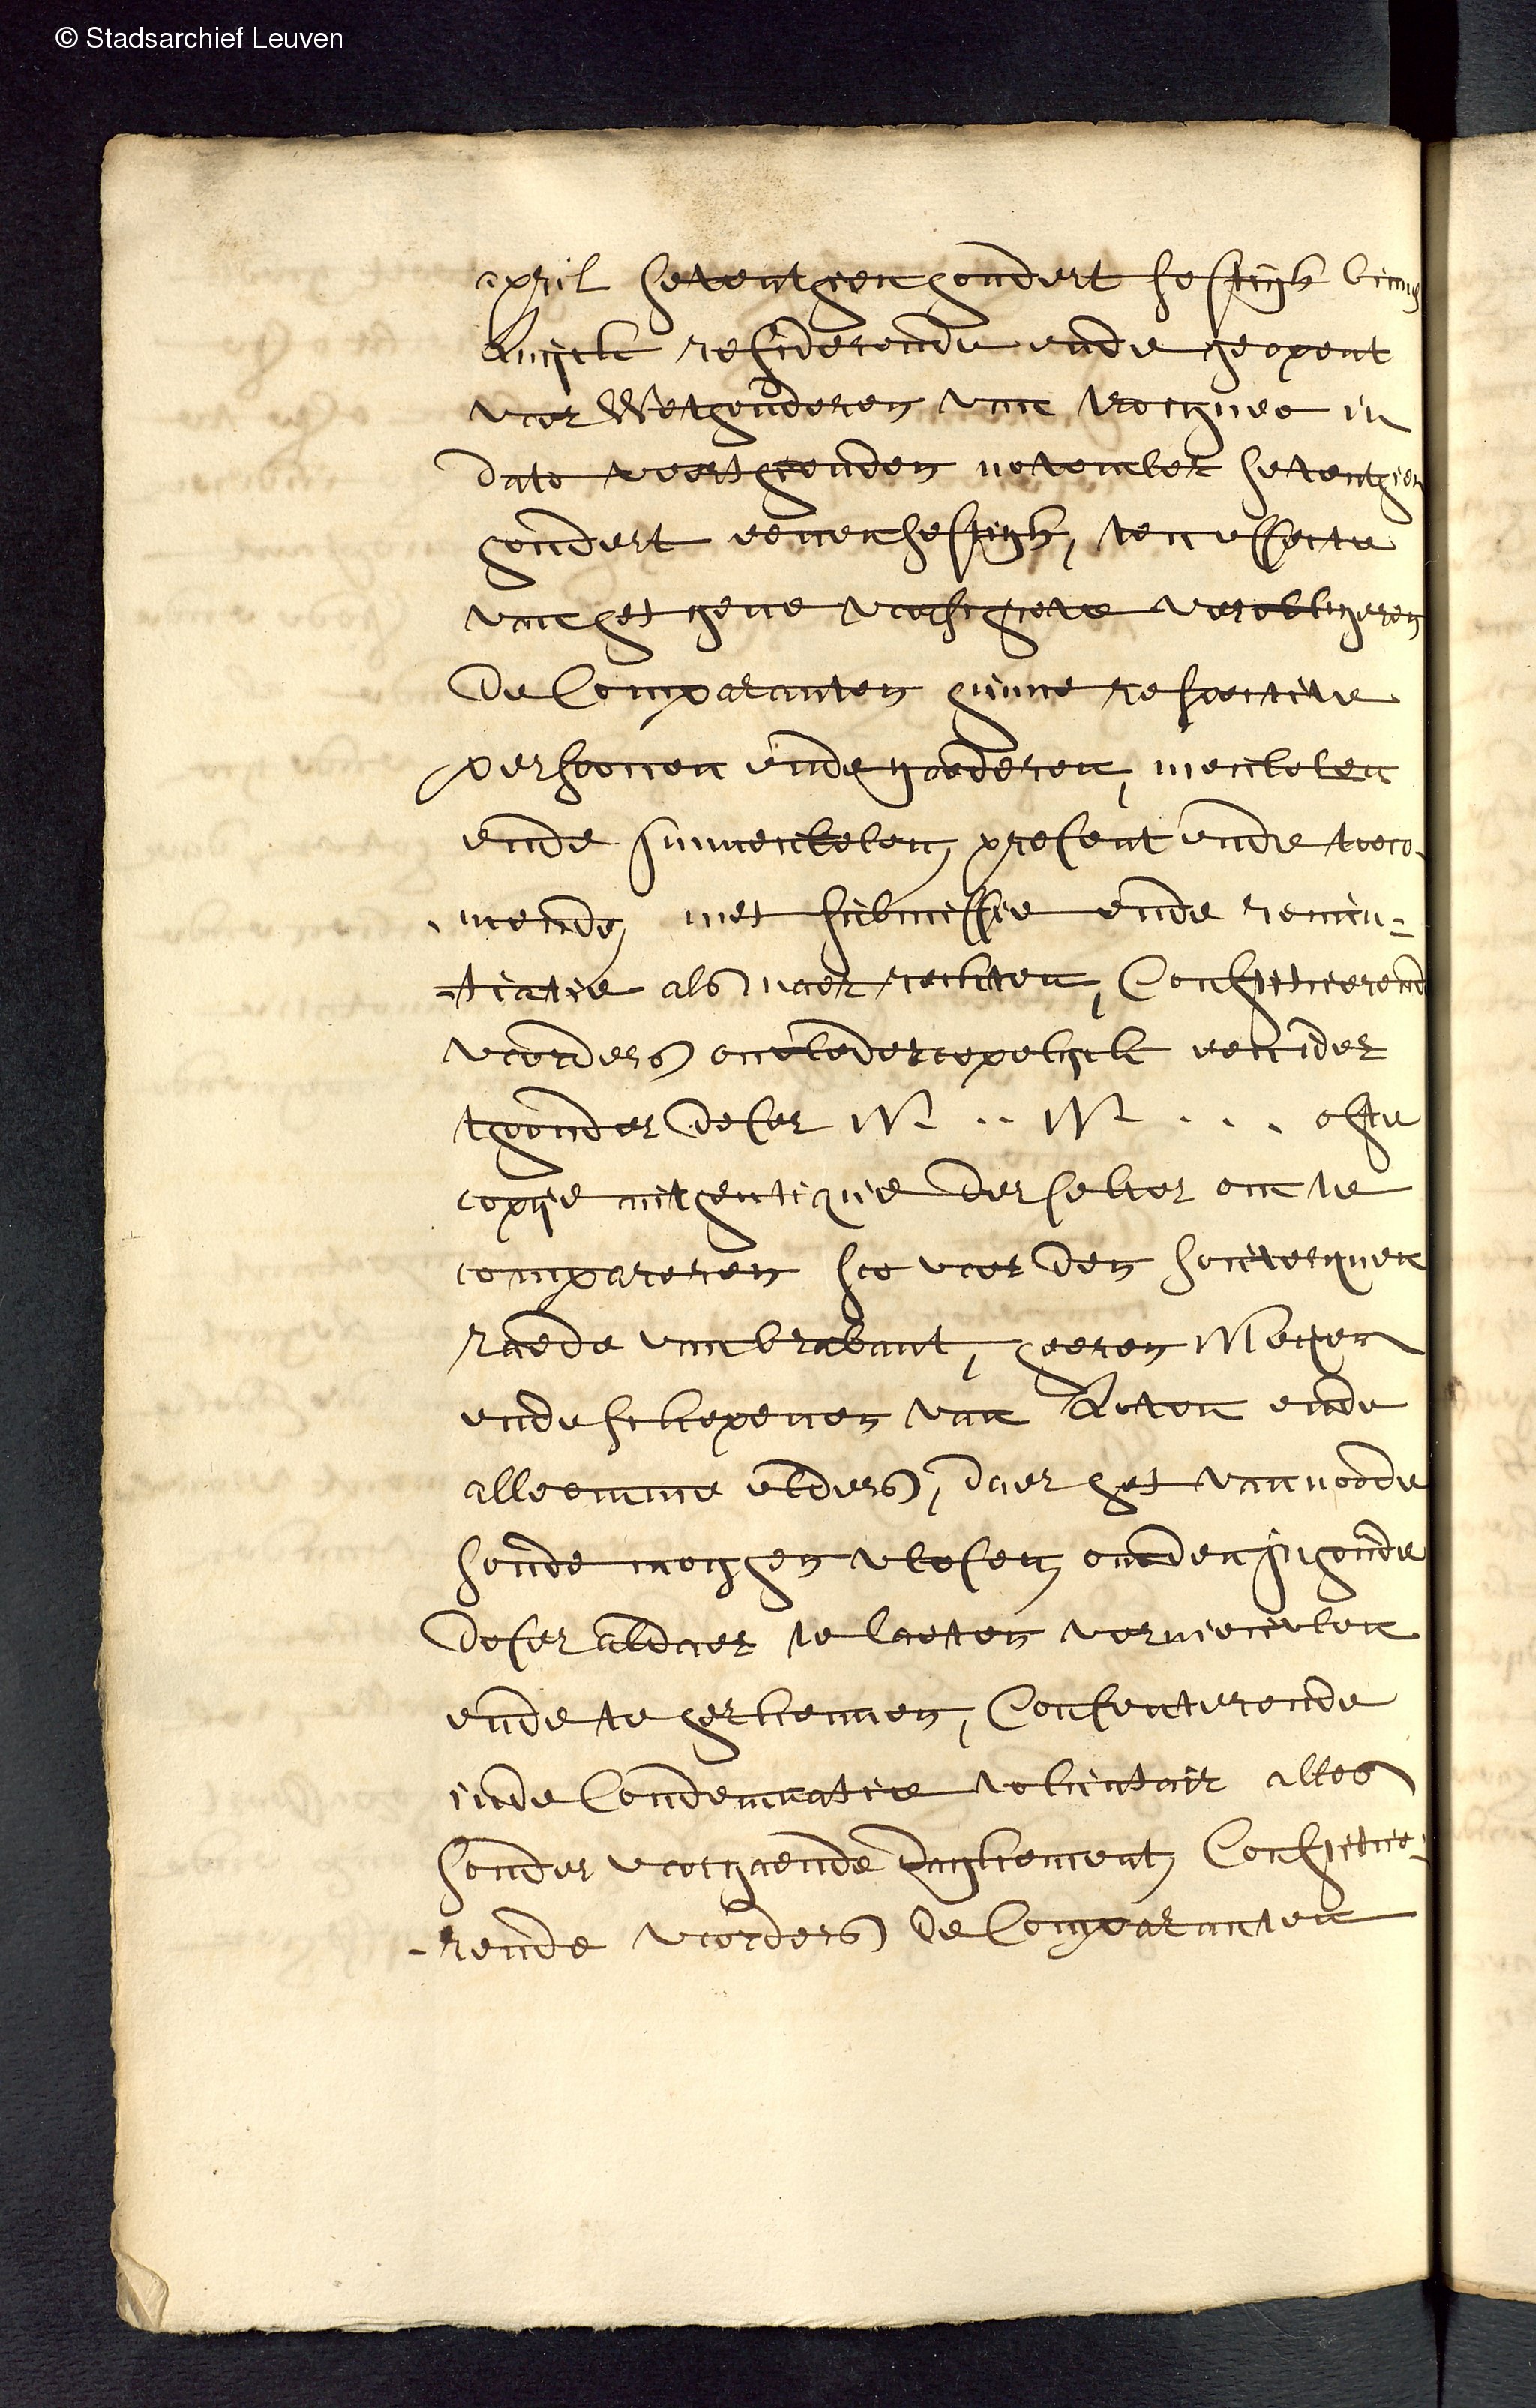 © Stadsarchief Leuven
april seventhien hondert sestigh binnen
Luyck residerende ende geopent
voor Wethouderen van trognee in
dato veerthienden november seventhien
hondert eenensestigh, ten effecte
van het gene voorschreve verobligeren
de Comparanten hunne respective
persoonen ende goederen, meubelen
ende immeubelen, present ende toeco-
-mende, met submissie ende renun-
-tiatie als naer rechten, Constituerende
voorders onwederroepelyck een ider
thoonder deser N .. N .... ofte
copye authentique derselver om te
compareren soo voor den souverynen
raede van brabant, heeren Meyer
ende schepenen van Loven ende
alle omme elders, daer het van noode
soude moghen wesen, om den inhoude
deser aldaer te laeten vernieuwen
ende te herkennen, Consenterende
in de Condemnatie volintair alles
sonder voorgaende daghement, Constitue-
-rende voorders de Comparanten